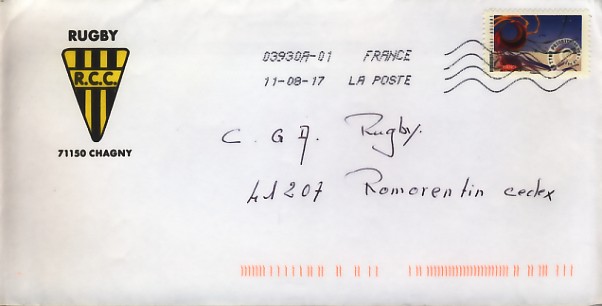 RUGBY
R.C.C.
71150 CHAGNY
03930A-01 FRANCE
11-08-17 LA POSTE
C. G A. Rugby.
41207 Romorentin cedex